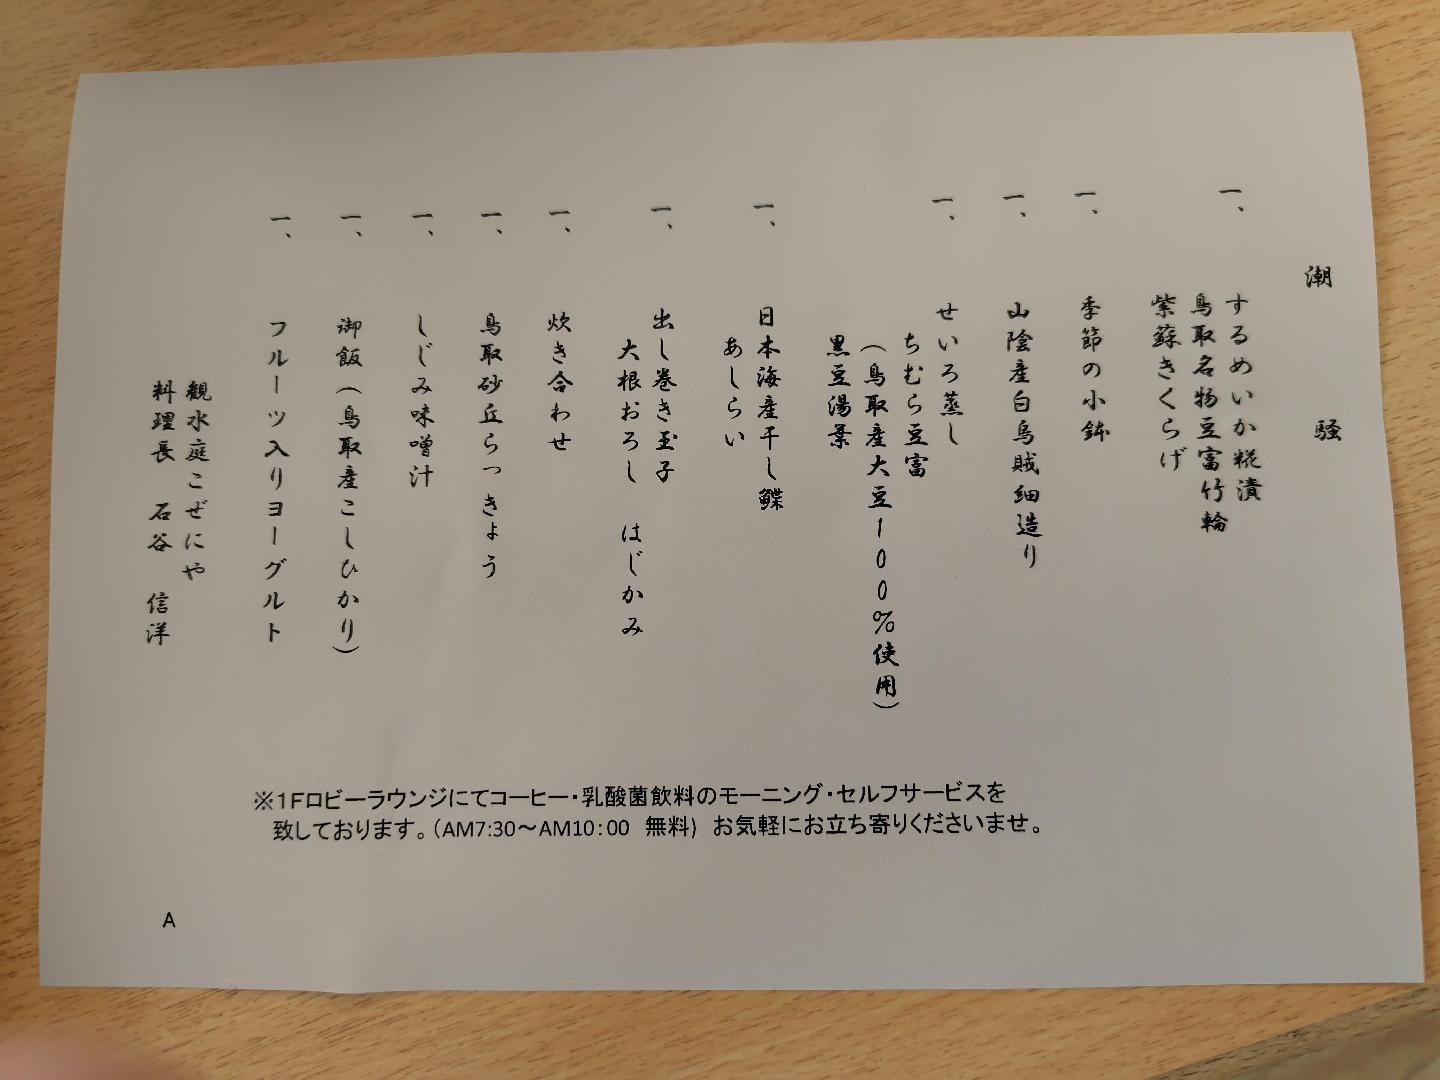 潮 騒
一、 するめいか糀漬
鳥取名物豆富竹輪
紫蘇きくらげ
一、 季節の小鉢
一、 山陰産白烏賊細造り
一、 せいろ蒸し
ちむら豆富
(鳥取産大豆100%使用)
黒豆湯葉
一、 日本海産干し鰈
あしらい
一、 出し巻き玉子
大根おろし はじかみ
一、 炊き合わせ
一、 鳥取砂丘らっきょう
一、 しじみ味噌汁
一、 御飯(鳥取産こしひかり)
一、 フルーツ入りヨーグルト
観水庭こぜにや
料理長 石谷 信洋
※1Fロビーラウンジにてコーヒー・乳酸菌飲料のモーニング・セルフサービスを
致しております。(AM7:30～AM10:00 無料) お気軽にお立ち寄りくださいませ。
A